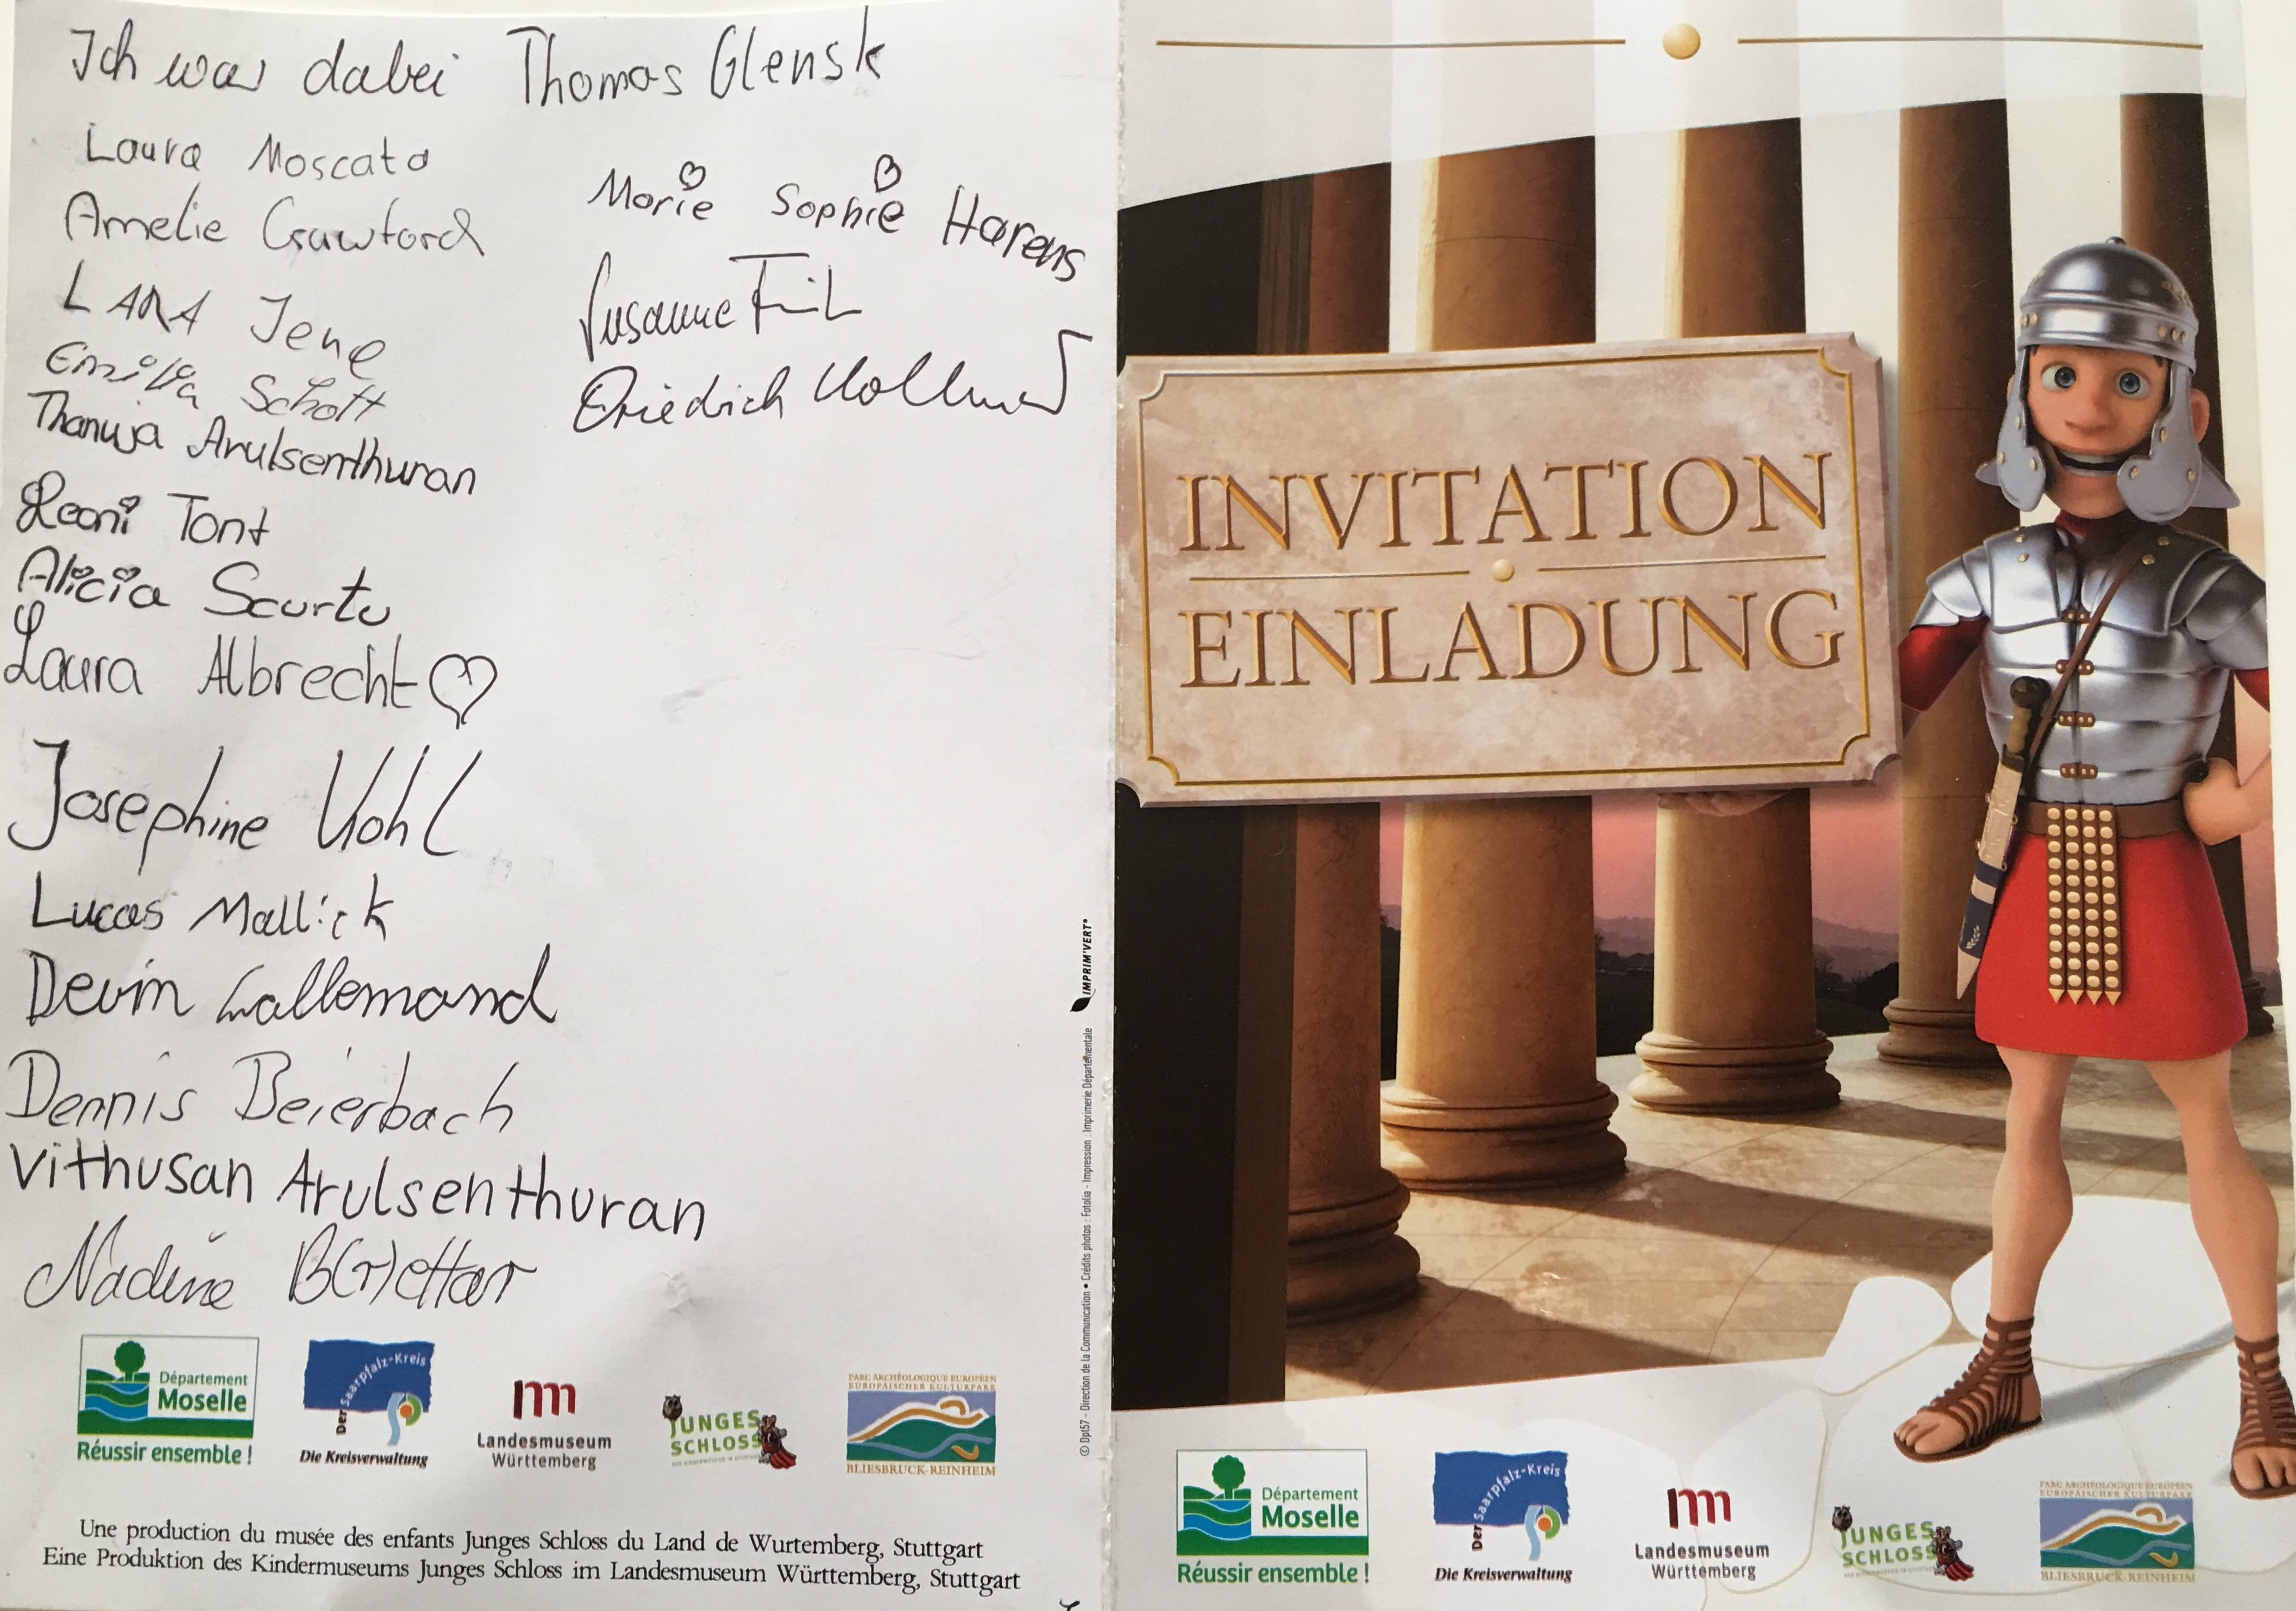 Ich war dabei Thomas Glensk
Laura Moscato
Amelie Crawford
LARA Jene
Emilia Schott
Thanuja Arulsenthuran
Leoni Tont
Alicia Scurtu
Laura Albrecht
Josephine Kohl
Lucas Mallick
Devin Lallemand
Dennis Beierbach
Vithusan Arulsenthuran
Nadine B(r)ettar
Marie Sophie Harens
Susanne
Friedrich
Département
Moselle
Réussir ensemble !
Der Saarpfalz-Kreis
Die Kreisverwaltung
Landesmuseum
Württemberg
JUNGES
SCHLOSS
PARC ARCHÉOLOGIQUE EUROPÉEN
EUROPÄISCHER KULTURPARK
BLIESBRUCK-REINHEIM
Une production du musée des enfants Junges Schloss du Land de Wurtemberg, Stuttgart
Eine Produktion des Kindermuseums Junges Schloss im Landesmuseum Württemberg, Stuttgart
© Dpt57 - Direction de la Communication • Crédits photos : Fotolia - Impression : Imprimerie Départementale
IMPRIM'VERT®
INVITATION
EINLADUNG
Département
Moselle
Réussir ensemble !
Der Saarpfalz-Kreis
Die Kreisverwaltung
Landesmuseum
Württemberg
JUNGES
SCHLOSS
PARC ARCHÉOLOGIQUE EUROPÉEN
EUROPÄISCHER KULTURPARK
BLIESBRUCK-REINHEIM